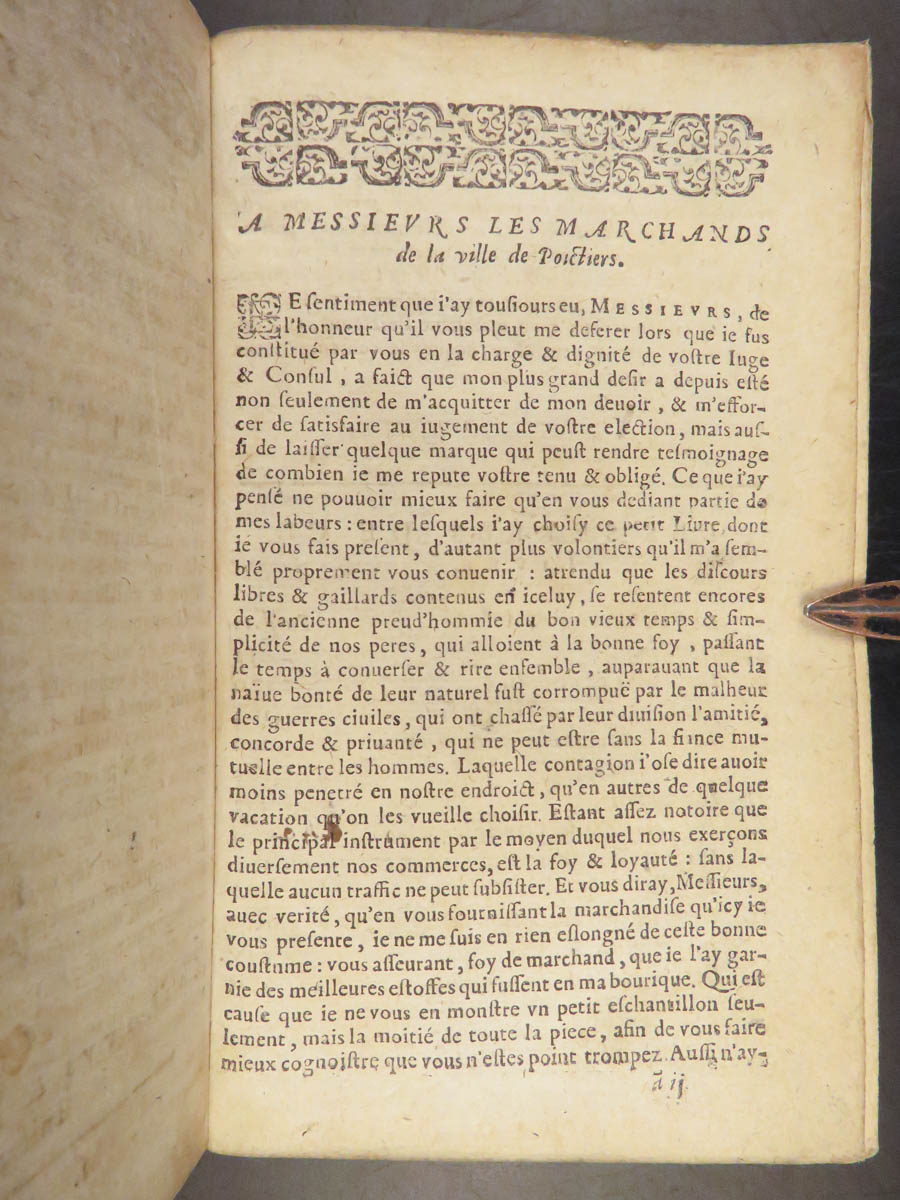 A MESSIEVRS LES MARCHANDS
de la ville de Poictiers.
LE ſentiment que i'ay touſiours eu, MESSIEVRS, de
l'honneur qu'il vous pleut me deferer lors que ie fus
conſtitué par vous en la charge & dignité de voſtre Iuge
& Conſul, a faict que mon plus grand deſir a depuis eſté
non ſeulement de m'acquitter de mon deuoir, & m'effor-
cer de ſatisfaire au iugement de voſtre election, mais auſ-
ſi de laiſſer quelque marque qui peuſt rendre teſmoignage
de combien ie me repute voſtre tenu & obligé. Ce que i'ay
penſé ne pouuoir mieux faire qu'en vous dediant partie de
mes labeurs : entre leſquels i'ay choiſy ce petit Liure, dont
ie vous fais preſent, d'autant plus volontiers qu'il m'a ſem-
blé proprement vous conuenir : attendu que les diſcours
libres & gaillards contenus en iceluy, ſe reſentent encores
de l'ancienne preud'hommie du bon vieux temps & ſim-
plicité de nos peres, qui alloient à la bonne foy, paſſant
le temps à conuerſer & rire enſemble, auparauant que la
naïue bonté de leur naturel fuſt corrompuë par le malheur
des guerres ciuiles, qui ont chaſſé par leur diuiſion l'amitié,
concorde & priuanté, qui ne peut eſtre ſans la fiance mu-
tuelle entre les hommes. Laquelle contagion i'oſe dire auoir
moins penetré en noſtre endroict, qu'en autres de quelque
vacation qu'on les vueille choiſir. Eſtant aſſez notoire que
le principal inſtrument par le moyen duquel nous exerçons
diuerſement nos commerces, eſt la foy & loyauté : ſans la-
quelle aucun traffic ne peut ſubſiſter. Et vous diray, Meſſieurs,
auec verité, qu'en vous fourniſſant la marchandiſe qu'icy ie
vous preſente, ie ne me ſuis en rien eſlongné de ceſte bonne
couſtume : vous aſſeurant, foy de marchand, que ie l'ay gar-
nie des meilleures eſtoffes qui fuſſent en ma bourique. Qui eſt
cauſe que ie ne vous en monſtre vn petit eſchantillon ſeu-
lement, mais la moitié de toute la piece, afin de vous faire
mieux cognoiſtre que vous n'eſtes point trompez. Auſſi n'ay-
à ij